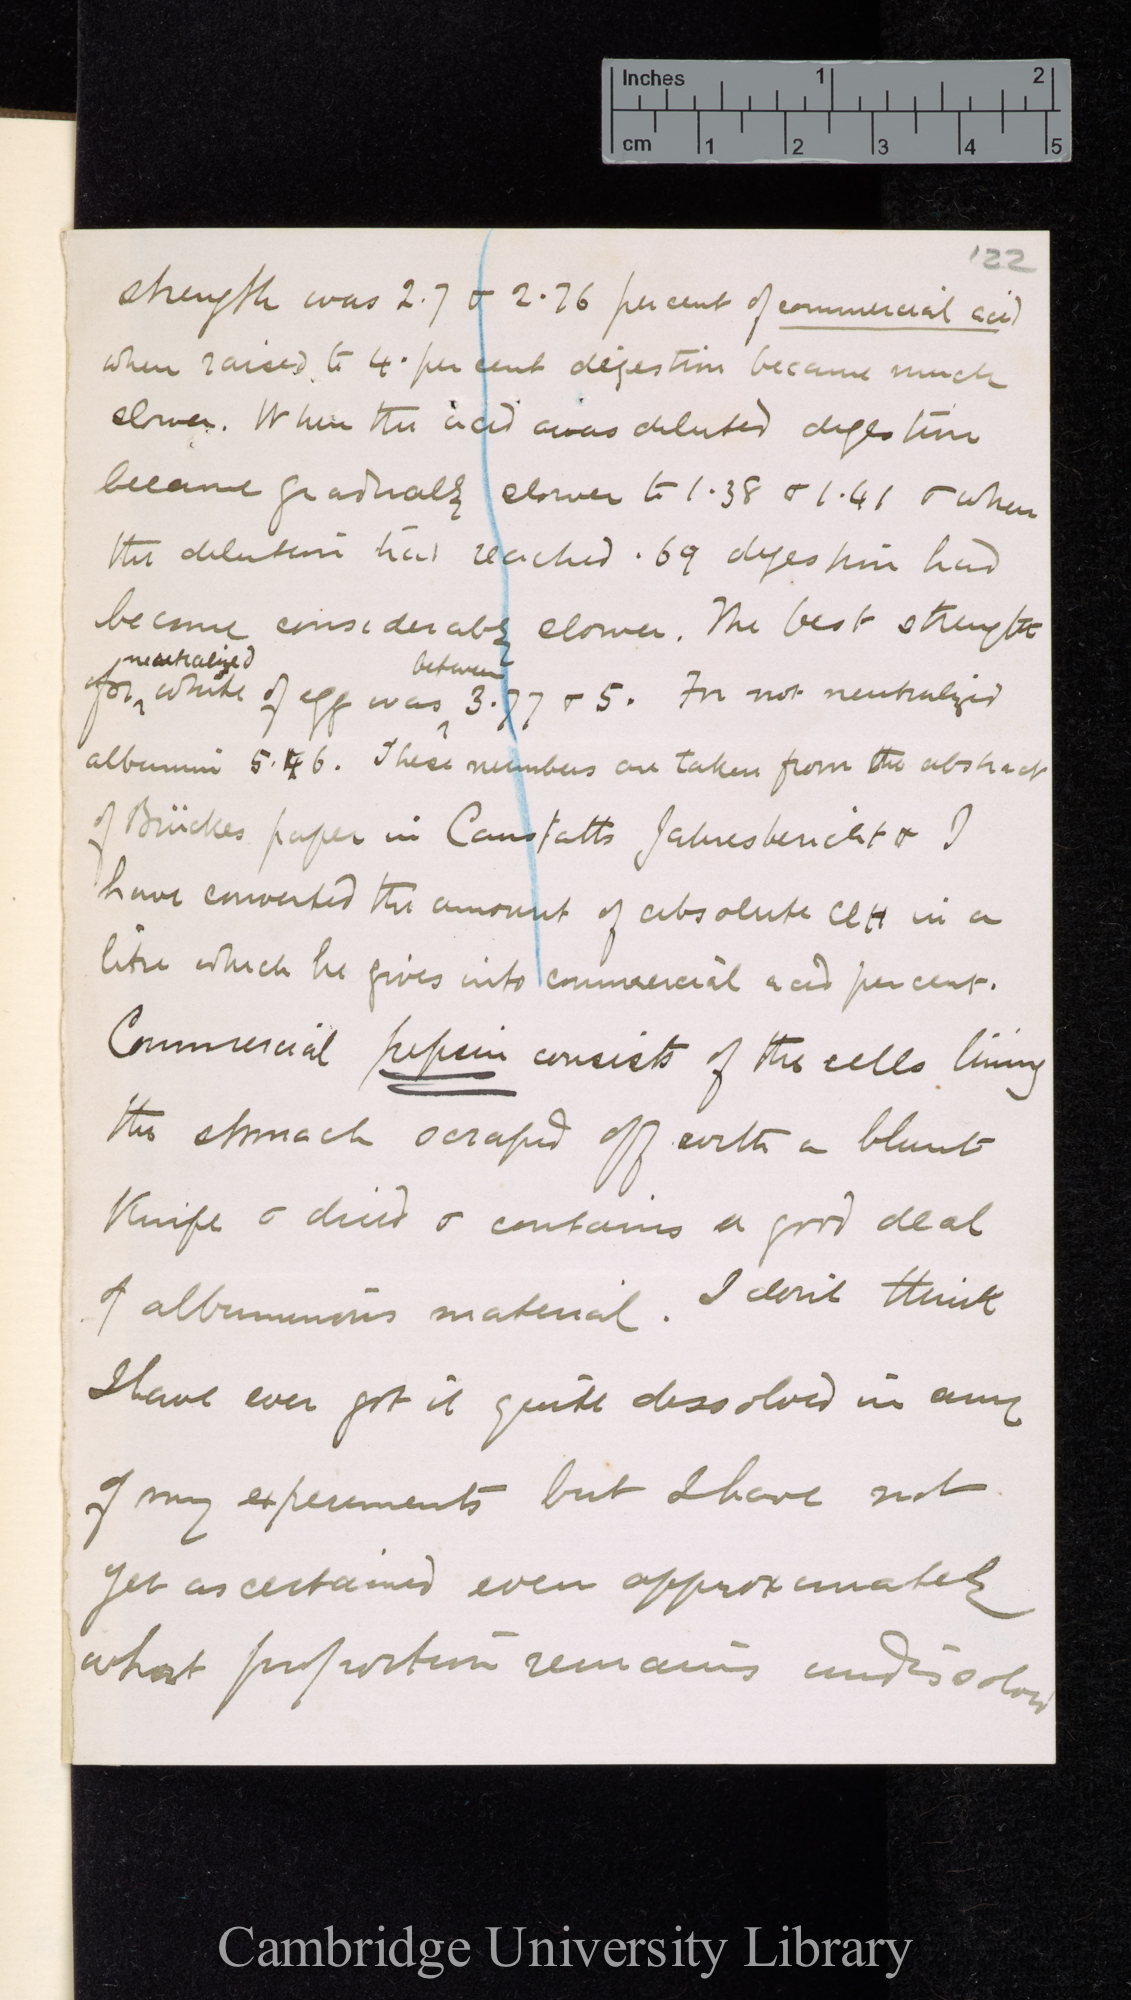 Inches 1 2
cm 1 2 3 4 5
122
strength was 2.7 & 2.76 per cent of commercial acid
when raised to 4. per cent digestion became much
slower. When the acid was diluted digestion
became gradually slower to 1.38 & 1.41 & when
the dilution had reached .69 digestion had
become considerably slower. The best strength
neutralized between
for white of egg was 3.77 & 5. For not neutralized
albumin 5.46. These numbers are taken from the abstract
of Brückes paper in Canstatts Jahresbericht & I
have converted the amount of absolute ClH in a
litre which he gives into commercial acid per cent.
Commercial pepsin consists of the cells lining
the stomach scraped off with a blunt
Knife & dried & contains a good deal
of albuminous material. I don't think
I have ever got it quite dissolved in any
of my experiments but I have not
yet ascertained even approximately
what proportion remains undissolved
Cambridge University Library